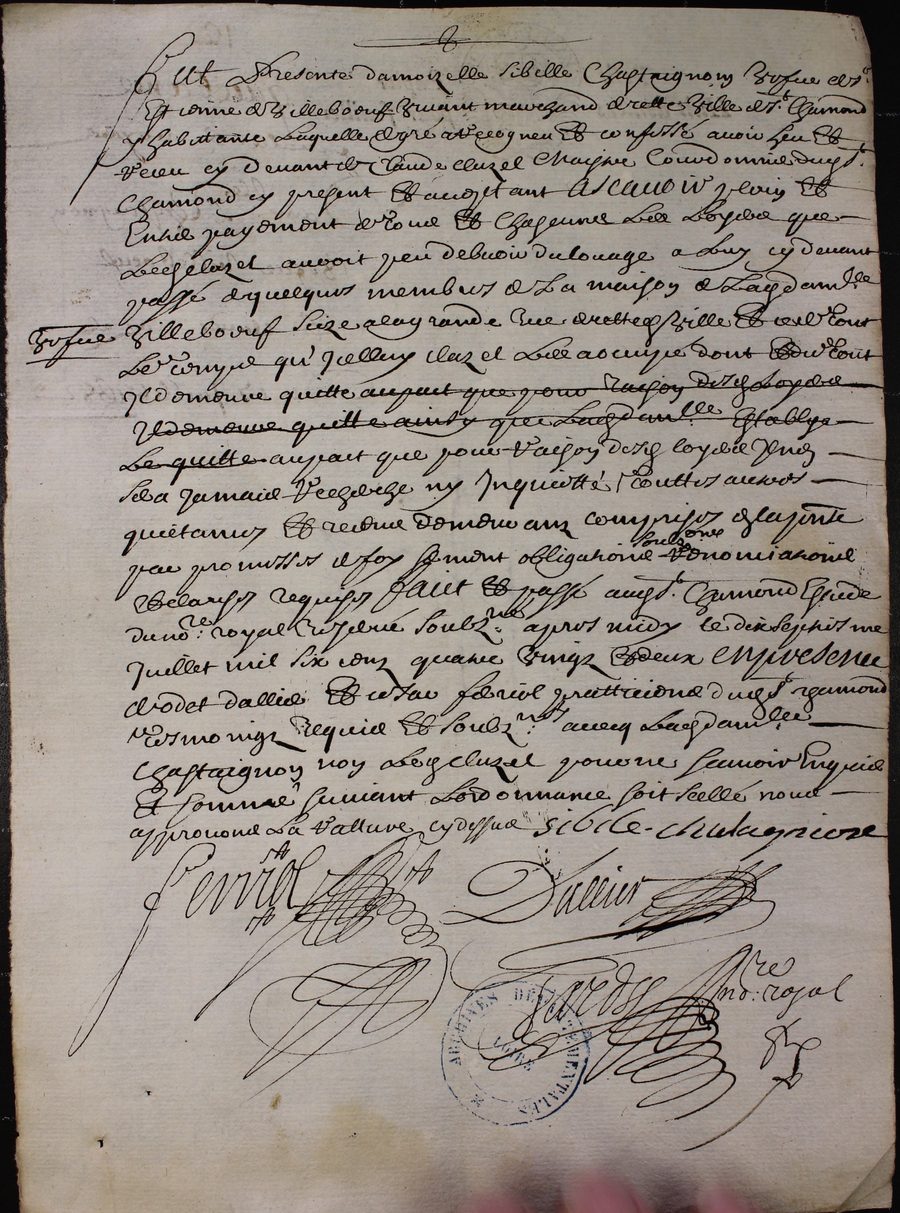 Fut presente damoizelle sibille Chastaignon vefve de sr
Estienne de villeboeuf vivant marchand de cette ville de st Chamond
y habittante Laquelle de gré a recogneu et confessé avoir heu et
receu cy devant de Claude clazel maistre Courdonnier dudt st
Chamond cy present et acceptant Ascavoir plein et
Entier payement de tous et Chascuns Les Loyers que
Ledt clazel auroit peu debvoir du louage a Luy cy devant
passé de quelques membres de La maison de Ladt damlle
vefve
villeboeuf size a la grande Rue de cette ville et de tout
Le temps qu'Icelluy clazel Les a occupé dont et du tout
Il demeure quitte au pact que pour raison desdt Loyers
Il demeure quitte ainsy que Ladt damlle establye
Le quitte au pact que pour raison desdt loyers Il n'en
sera Jamais recherché ny Inquietté touttes autres
quictances et receus demeurans comprises
par promesses de foy serment obligations soubzmons renonciations
et clauses requises fait et passé audt st Chamond Estude
du nore royal reservé soubzné apres midy le dix septiesme
Juillet mil six cens quatre vingt deux en presence
d'odet dallier et ferriol pratticiens dudt st chamond
tesmoings requis et soubznés avecq Ladt damlle
Chastaignon non Ledt clazel pour ne scavoir Enquis
et sommé suivant Lordonnance soit scellé nous
approuvons La ratture cy dessus sibile chatagnone
ferriol
Dallier
nore
royal
ARCHIVES DÉPARTEMENTALES
LOIRE